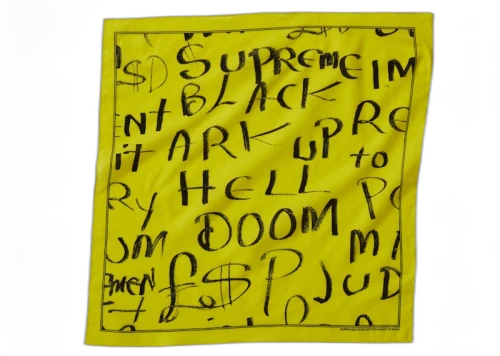 $D SUPREME IM
BLACK
NT ARK UP RE
it to
RY HELL PO
UM DOOM MI
MEN £$P JUD